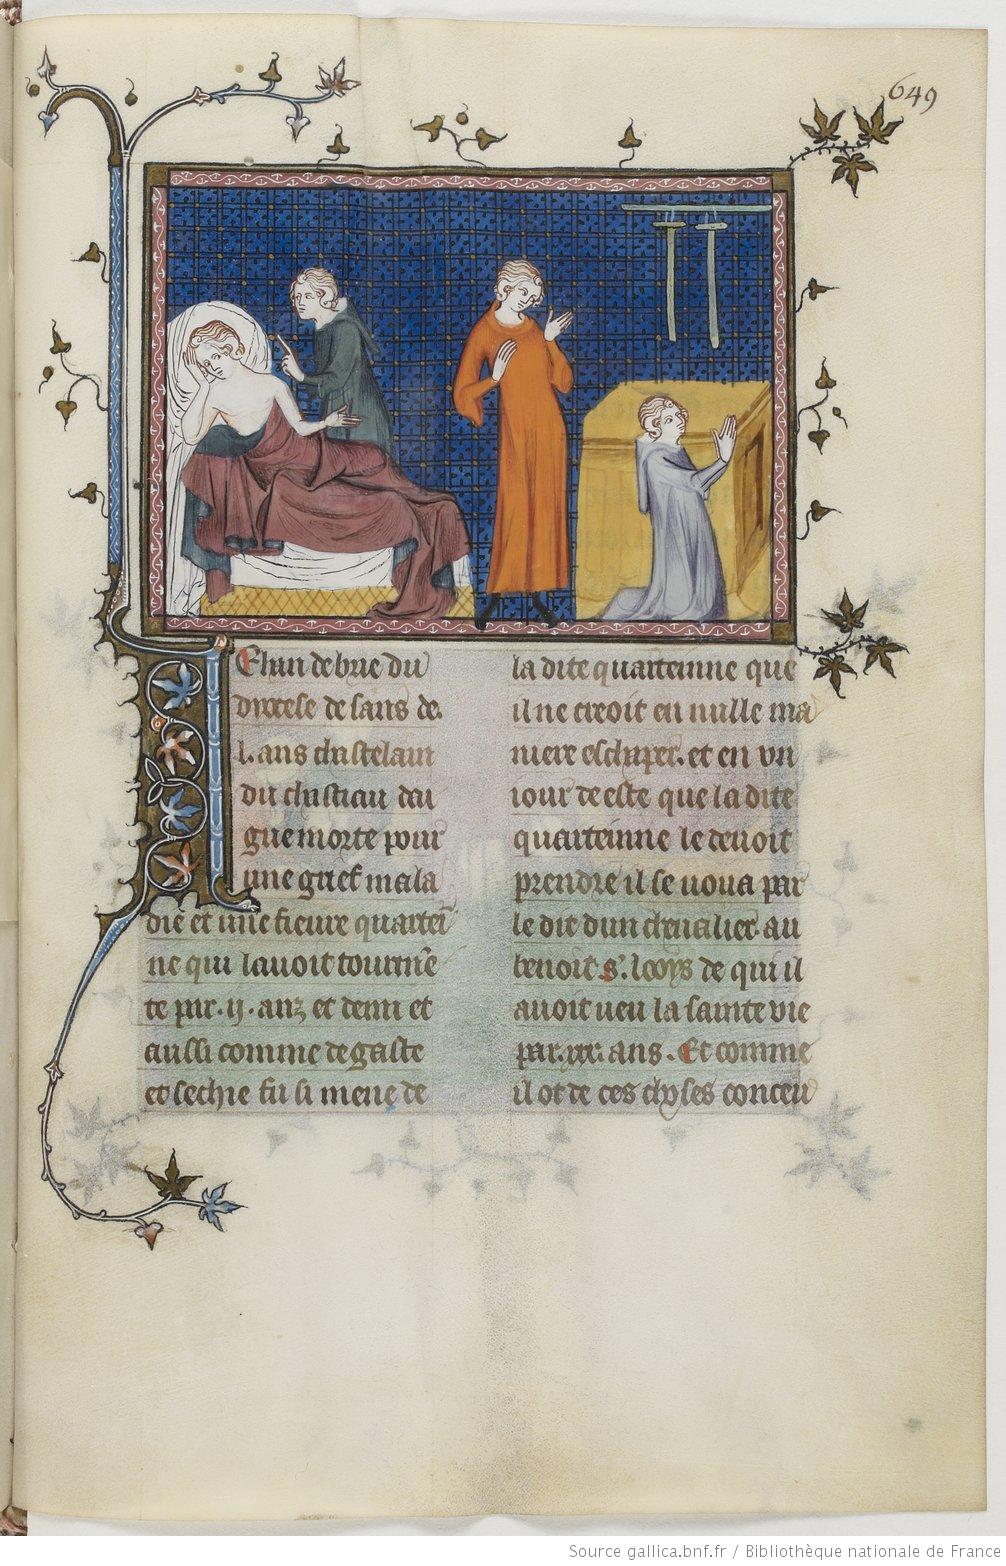 649
Jehan de brie du
diocese de sans de
l. ans chastelain
du chastiau dai
gue morte pour
une grief mala
die et une fieure quartei
ne qui lauoit tourme
te par .ij. anz et demi et
aussi comme degaste
et sechie fu si mene de
la dite quarteinne que
il ne creoit en nulle ma
niere eschaper. et en vn
iour de este que la dite
quarteinne le deuoit
prendre il se uoua par
le dit dun cheualier au
benoit s'. looys de qui il
auoit ueu la sainte vie
par .xx. ans. Et comme
il ot de ces choses conceu
Source gallica.bnf.fr / Bibliothèque nationale de France